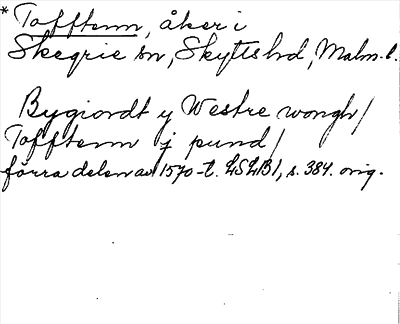 * Tofftenn, åker i
Skegrie sn, Skytts hd, Malm. l.
Bygiordt y Westre wongh/
Tofftenn j pund/
förra delen av 1570-t. LSLB1, s. 384. orig.